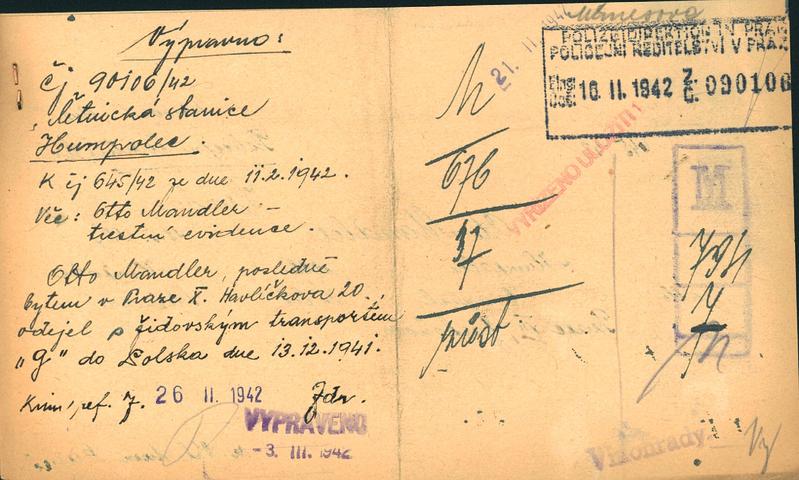 Výpravno:
čj 90106/42
četnická stanice
Humpolec.
K čj 645/42 ze dne 11.2.1942.
Věc: Otto Mandler –
trestní evidence.
Otto Mandler, posledně
bytem v Praze X. Havlíčkova 20
odejel s židovským transportem
"g" do Polska dne 13.12.1941.
Krim. ref. 7. 26 II. 1942
VYPRAVENO
-3. III. 1942
M
676
37
21. II.
VYŘÍZENO
POLIZEIDIREKTION IN PRAG
POLICEJNÍ ŘEDITELSTVÍ V PRAZE
16 II. 1942 Z. Č. 090106
M
791
7
Vinohrady